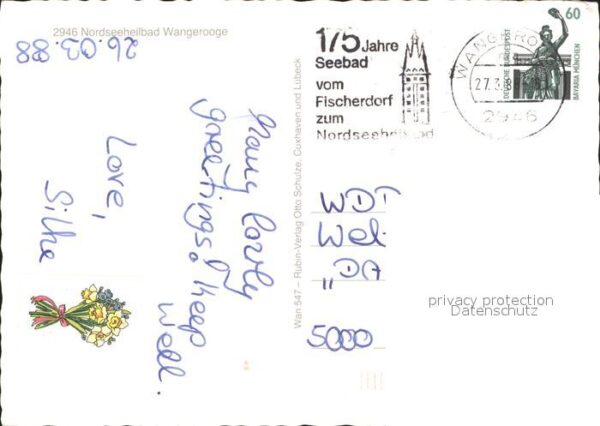 2946 Nordseeheilbad Wangerooge
26.03.88
Many lovely
greetings! Keep
well.
Love,
Silke
Wan 547 – Rubin-Verlag Otto Schulze, Cuxhaven und Lübeck
175 Jahre
Seebad
vom
Fischerdorf
zum
Nordseeheilbad
WANGERO
27.3.8
2946
60
DEUTSCHE BUNDESPOST
BAVARIA MÜNCHEN
WDT
Wel
„DA
5000
privacy protection
Datenschutz